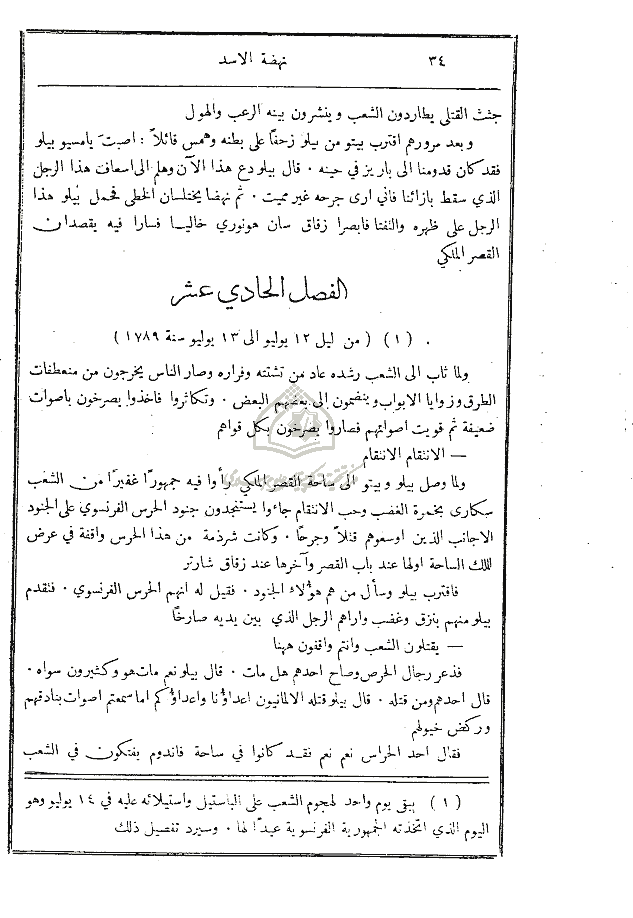 ٣٤
نهضة الاسد
جثث القتلى يطاردون الشعب وينشرون بينه الرعب والهول
وبعد مرورهم اقترب بيتو من بيلو زحفًا على بطنه وهمس قائلاً : اصبتَ يامسيو بيلو
فقد كان قدومنا الى باريز في حينه ٠ قال بيلو دع هذا الآن وهلم الى اسعاف هذا الرجل
الذي سقط بازائنا فاني ارى جرحه غير مميت ٠ ثم نهضا يختلسان الخطى فحمل بيلو هذا
الرجل على ظهره والتفتا فابصرا زقاق سان هونوري خاليا فسارا فيه يقصدان
القصر الملكي
الفصل الحادي عشر
٠ (١) (من ليل ١٢ يوليو الى ١٣ يوليو سنة ١٧٨٩)
ولما ثاب الى الشعب رشده عاد من تشتته وفراره وصار الناس يخرجون من منعطفات
الطرق وزوايا الابواب وينضمون الى بعضهم البعض ٠ وتكاثروا فاخذوا يصرخون باصوات
ضعيفة ثم قويت اصواتهم فصاروا يصرخون بكل قواهم
— الانتقام الانتقام
ولما وصل بيلو وبيتو الى ساحة القصر الملكي رأوا فيه جمهورًا غفيرًا من الشعب
سكارى بخمرة الغضب وحب الانتقام جاءوا يستنجدون جنود الحرس الفرنسوي على الجنود
الاجانب الذين اوسعوهم قتلاً وجرحًا ٠ وكانت شرذمة من هذا الحرس واقفة في عرض
تلك الساحة اولها عند باب القصر وآخرها عند زقاق شارتر
فاقترب بيلو وسأل من هم هؤلاء الجنود ٠ فقيل له انهم الحرس الفرنسوي ٠ فتقدم
بيلو منهم بنزق وغضب واراهم الرجل الذي بين يديه صارخًا
— يقتلون الشعب وانتم واقفون ههنا
فذعر رجال الحرص وصاح احدهم هل مات ٠ قال بيلو نعم مات هو وكثيرون سواه ٠
قال احدهم ومن قتله ٠ قال بيلو قتله الالمانيون اعداؤنا واعداؤكم اما سمعتم اصوات بنادقهم
وركض خيولهم
فقال احد الحراس نعم نعم نقد كانوا في ساحة فاندوم يفتكون في الشعب
(١) بقي يوم واحد لهجوم الشعب على الباستيل واستيلائه عليه في ١٤ يوليو وهو
اليوم الذي اتخذته الجمهورية الفرنسوية عيدًا لها ٠ وسيرد تفصيل ذلك